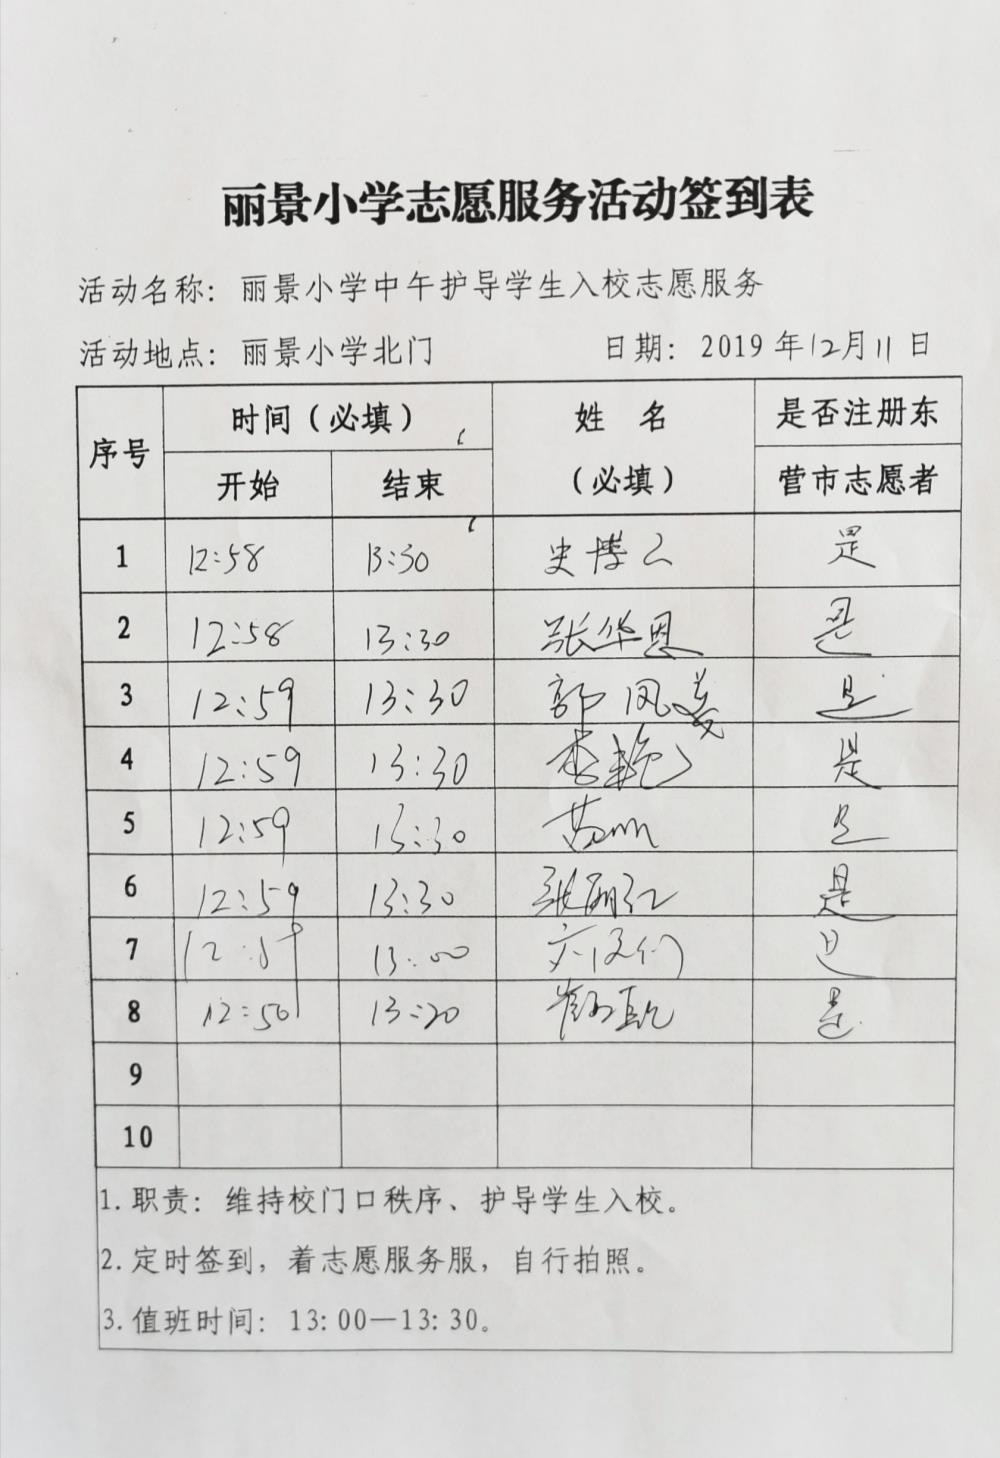 丽景小学志愿服务活动签到表
活动名称：丽景小学中午护导学生入校志愿服务
活动地点：丽景小学北门 日期：2019年12月11日
序号 时间（必填） 姓 名 是否注册东
开始 结束 （必填） 营市志愿者
1 12:58 13:30 史 是
2 12:58 13:30 张华恩 是
3 12:59 13:30 郭凤美 是
4 12:59 13:30 李艳 是
5 12:59 13:30 是
6 12:59 13:30 张丽红 是
7 13:00 是
8 13:20 是
9
10
1.职责：维持校门口秩序、护导学生入校。
2.定时签到，着志愿服务服，自行拍照。
3.值班时间：13:00—13:30。